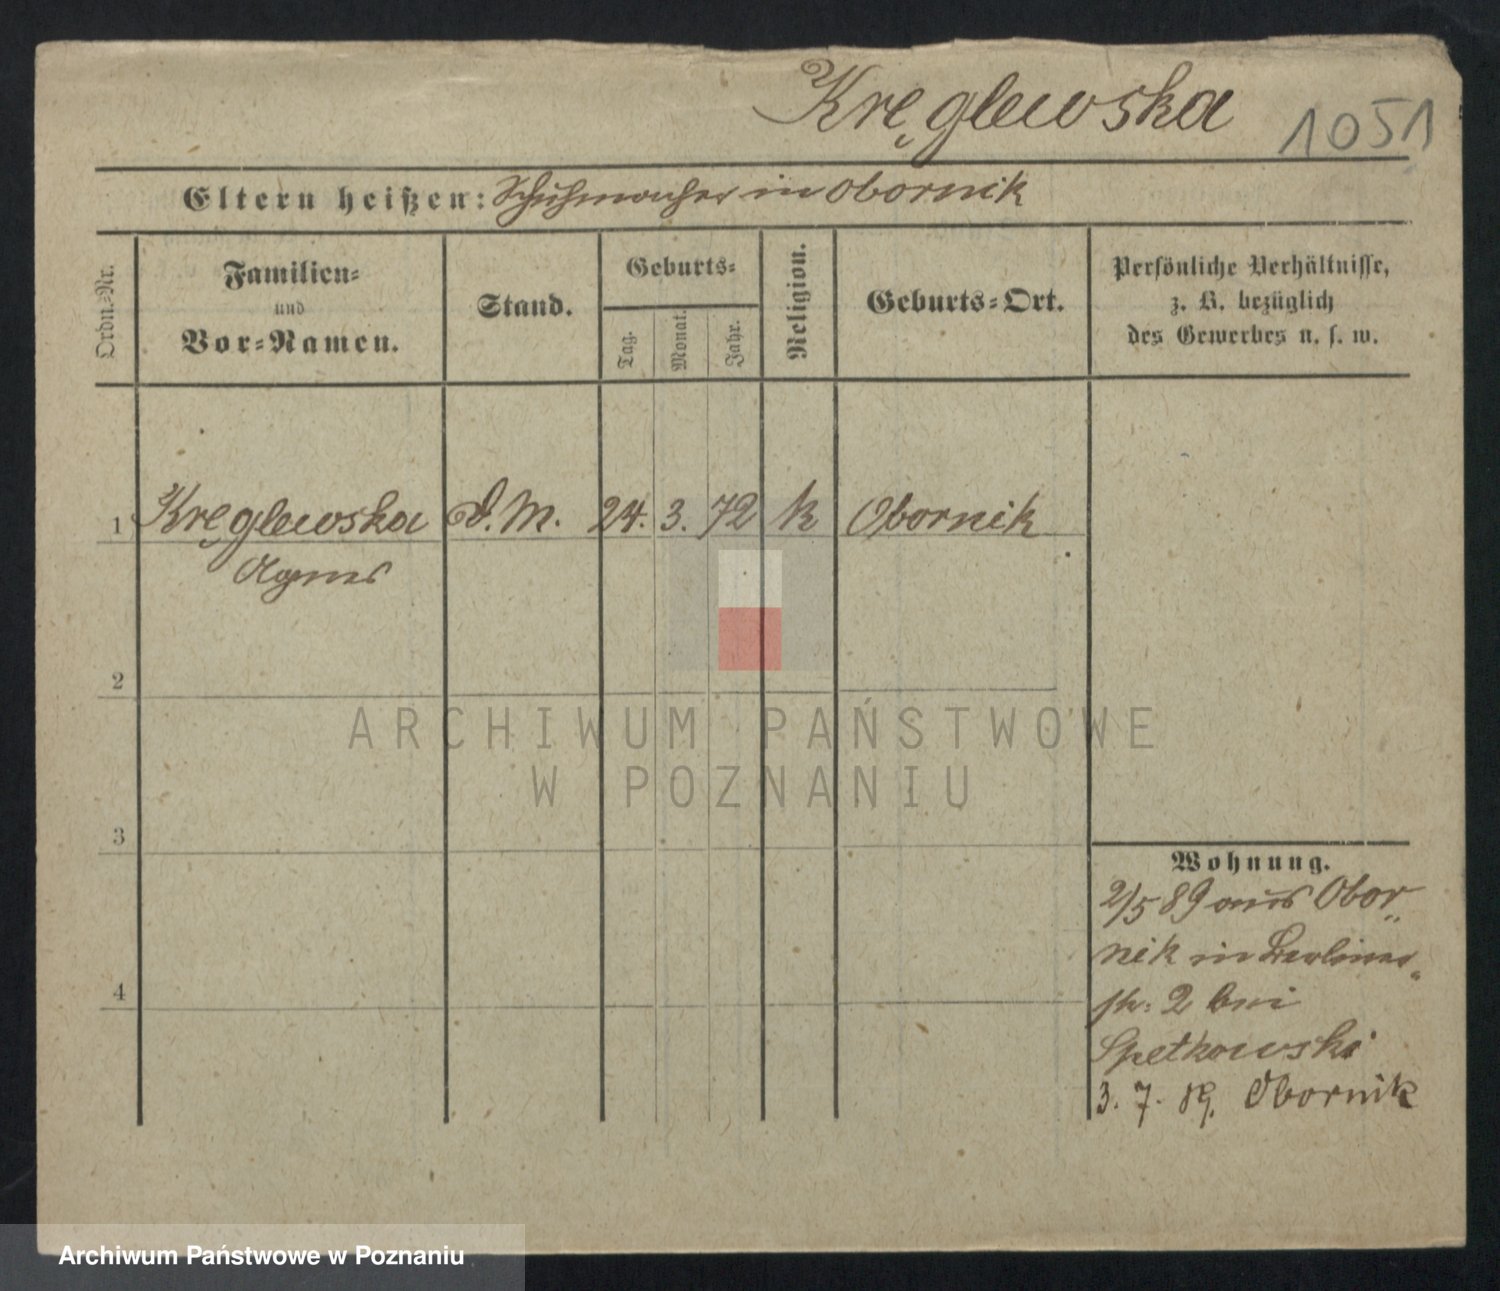 Kręglewska 1051
Eltern heißen: Schuhmacher in Obornik
Ordn.-Nr.
Familien-
und
Vor-Namen.
Stand.
Geburts-
Tag.
Monat.
Jahr.
Religion.
Geburts-Ort.
Persönliche Verhältnisse,
z. B. bezüglich
des Gewerbes u. s. w.
1 Kręglewska D. M. 24. 3. 72 k Obornik
Agnes
2
3
4
Wohnung.
2/5 89 aus Obor„
nik in Berliner„
str: 2 bei
Spetkowski
3. 7. 89. Obornik
ARCHIWUM PAŃSTWOWE
W POZNANIU
Archiwum Państwowe w Poznaniu